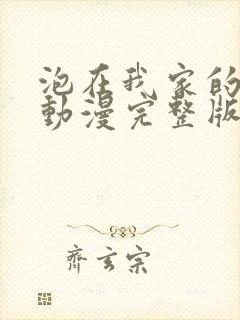 泡在我家的
動漫完整版
齊玄宗